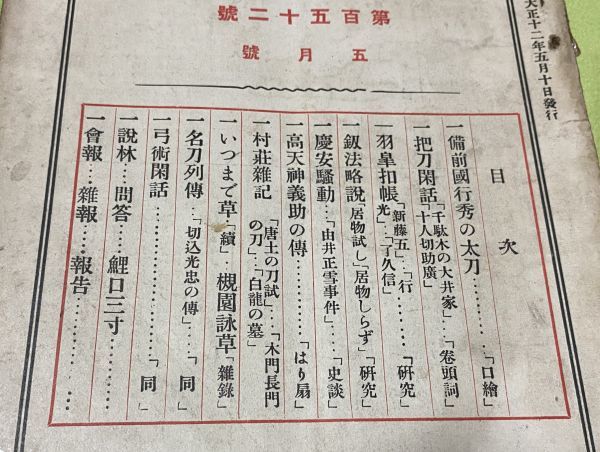 大正十二年五月十日發行
第百五十二號
五月號
目次
一備前國行秀の太刀…………「口繪」
一把刀閑話「千駄木の大井家」「十人切助廣」…「卷頭詞」
一羽皐扣帳「新藤五」…「行光」…「了久信」………「硏究」
一鈑法略說「居物試し」「居物しらず」「硏究」
一慶安騷動…「由井正雪事件」…「史談」
一高天神義助の傳…………「はり扇」
一村莊雜記「唐土の刀試」…「木門長門の刀」…「白龍の墓」
一いつまで草「續」 槻園詠草「雜錄」
一名刀列傳…「切込光忠の傳」…「同」
一弓術閑話………………「同」
一說林…問答……鯉口三寸………
一會報…雜報……報告………